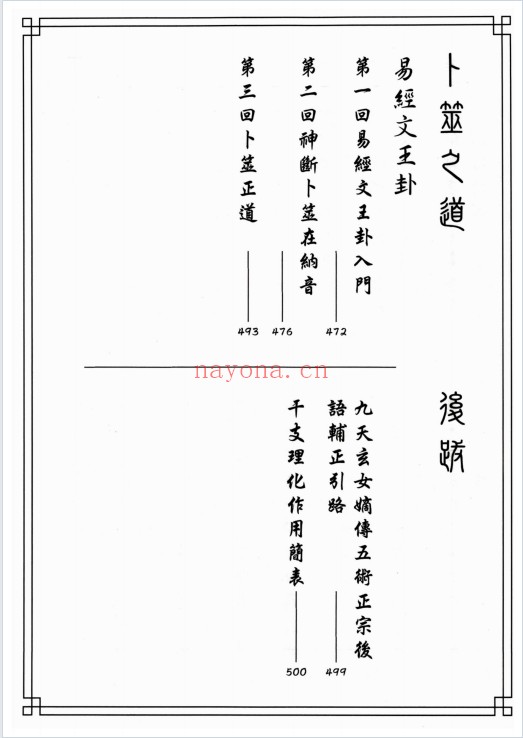 卜筮之道
易經文王卦
第一回易經文王卦入門
472
第二回神斷卜筮在納音
476
第三回卜筮正道
493
後跋
九天玄女嫡傳五術正宗後
語輔正引路
499
干支理化作用簡表
500
nayona.cn